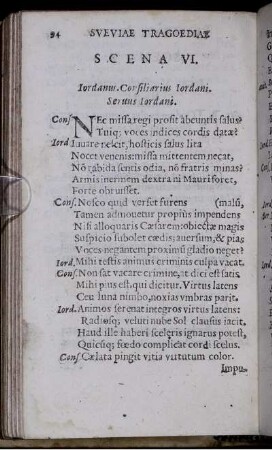 94 SVEVIAE TRAGOEDIAE
SCENA VI.
Iordanus. Consiliarius Iordani.
Seruus Iordani.
Cons. NEc missa regi profit abeuntis salus?
Tuiq; voces indices cordis datæ?
Iord. Iuuare nescit, hosticis salus lita
Nocet venenis: missa mittentem necat,
Nõ rabida sentis odia, nõ fratris minas?
Armis inermem dextra ni Mauri foret,
Forte obruisset.
Cons. Nosco quid verset furens (malũ,
Tamen admouetur propius impendens
Ni si alloquaris Cæsarem: obiectæ magis
Suspicio subolet cædis; auersum, & pias
Voces negantem proximus gladio neget?
Iord. Mihi testis animus criminis culpa vacat.
Cons. Non sat vacare crimine, at dici est satis.
Iord. Mihi plus est, qui dicitur. Virtus latens
Ceu luna nimbo, noxias vmbras parit.
Iord. Animos serenat integros virtus latens:
Radiosq; veluti nube Sol clausus iacit,
Haud ille haberi sceleris ignarus potest,
Quicūq; fœdo complicat cordi scelus.
Cons. Cælata pingit vitia virtutum color.
Impu-